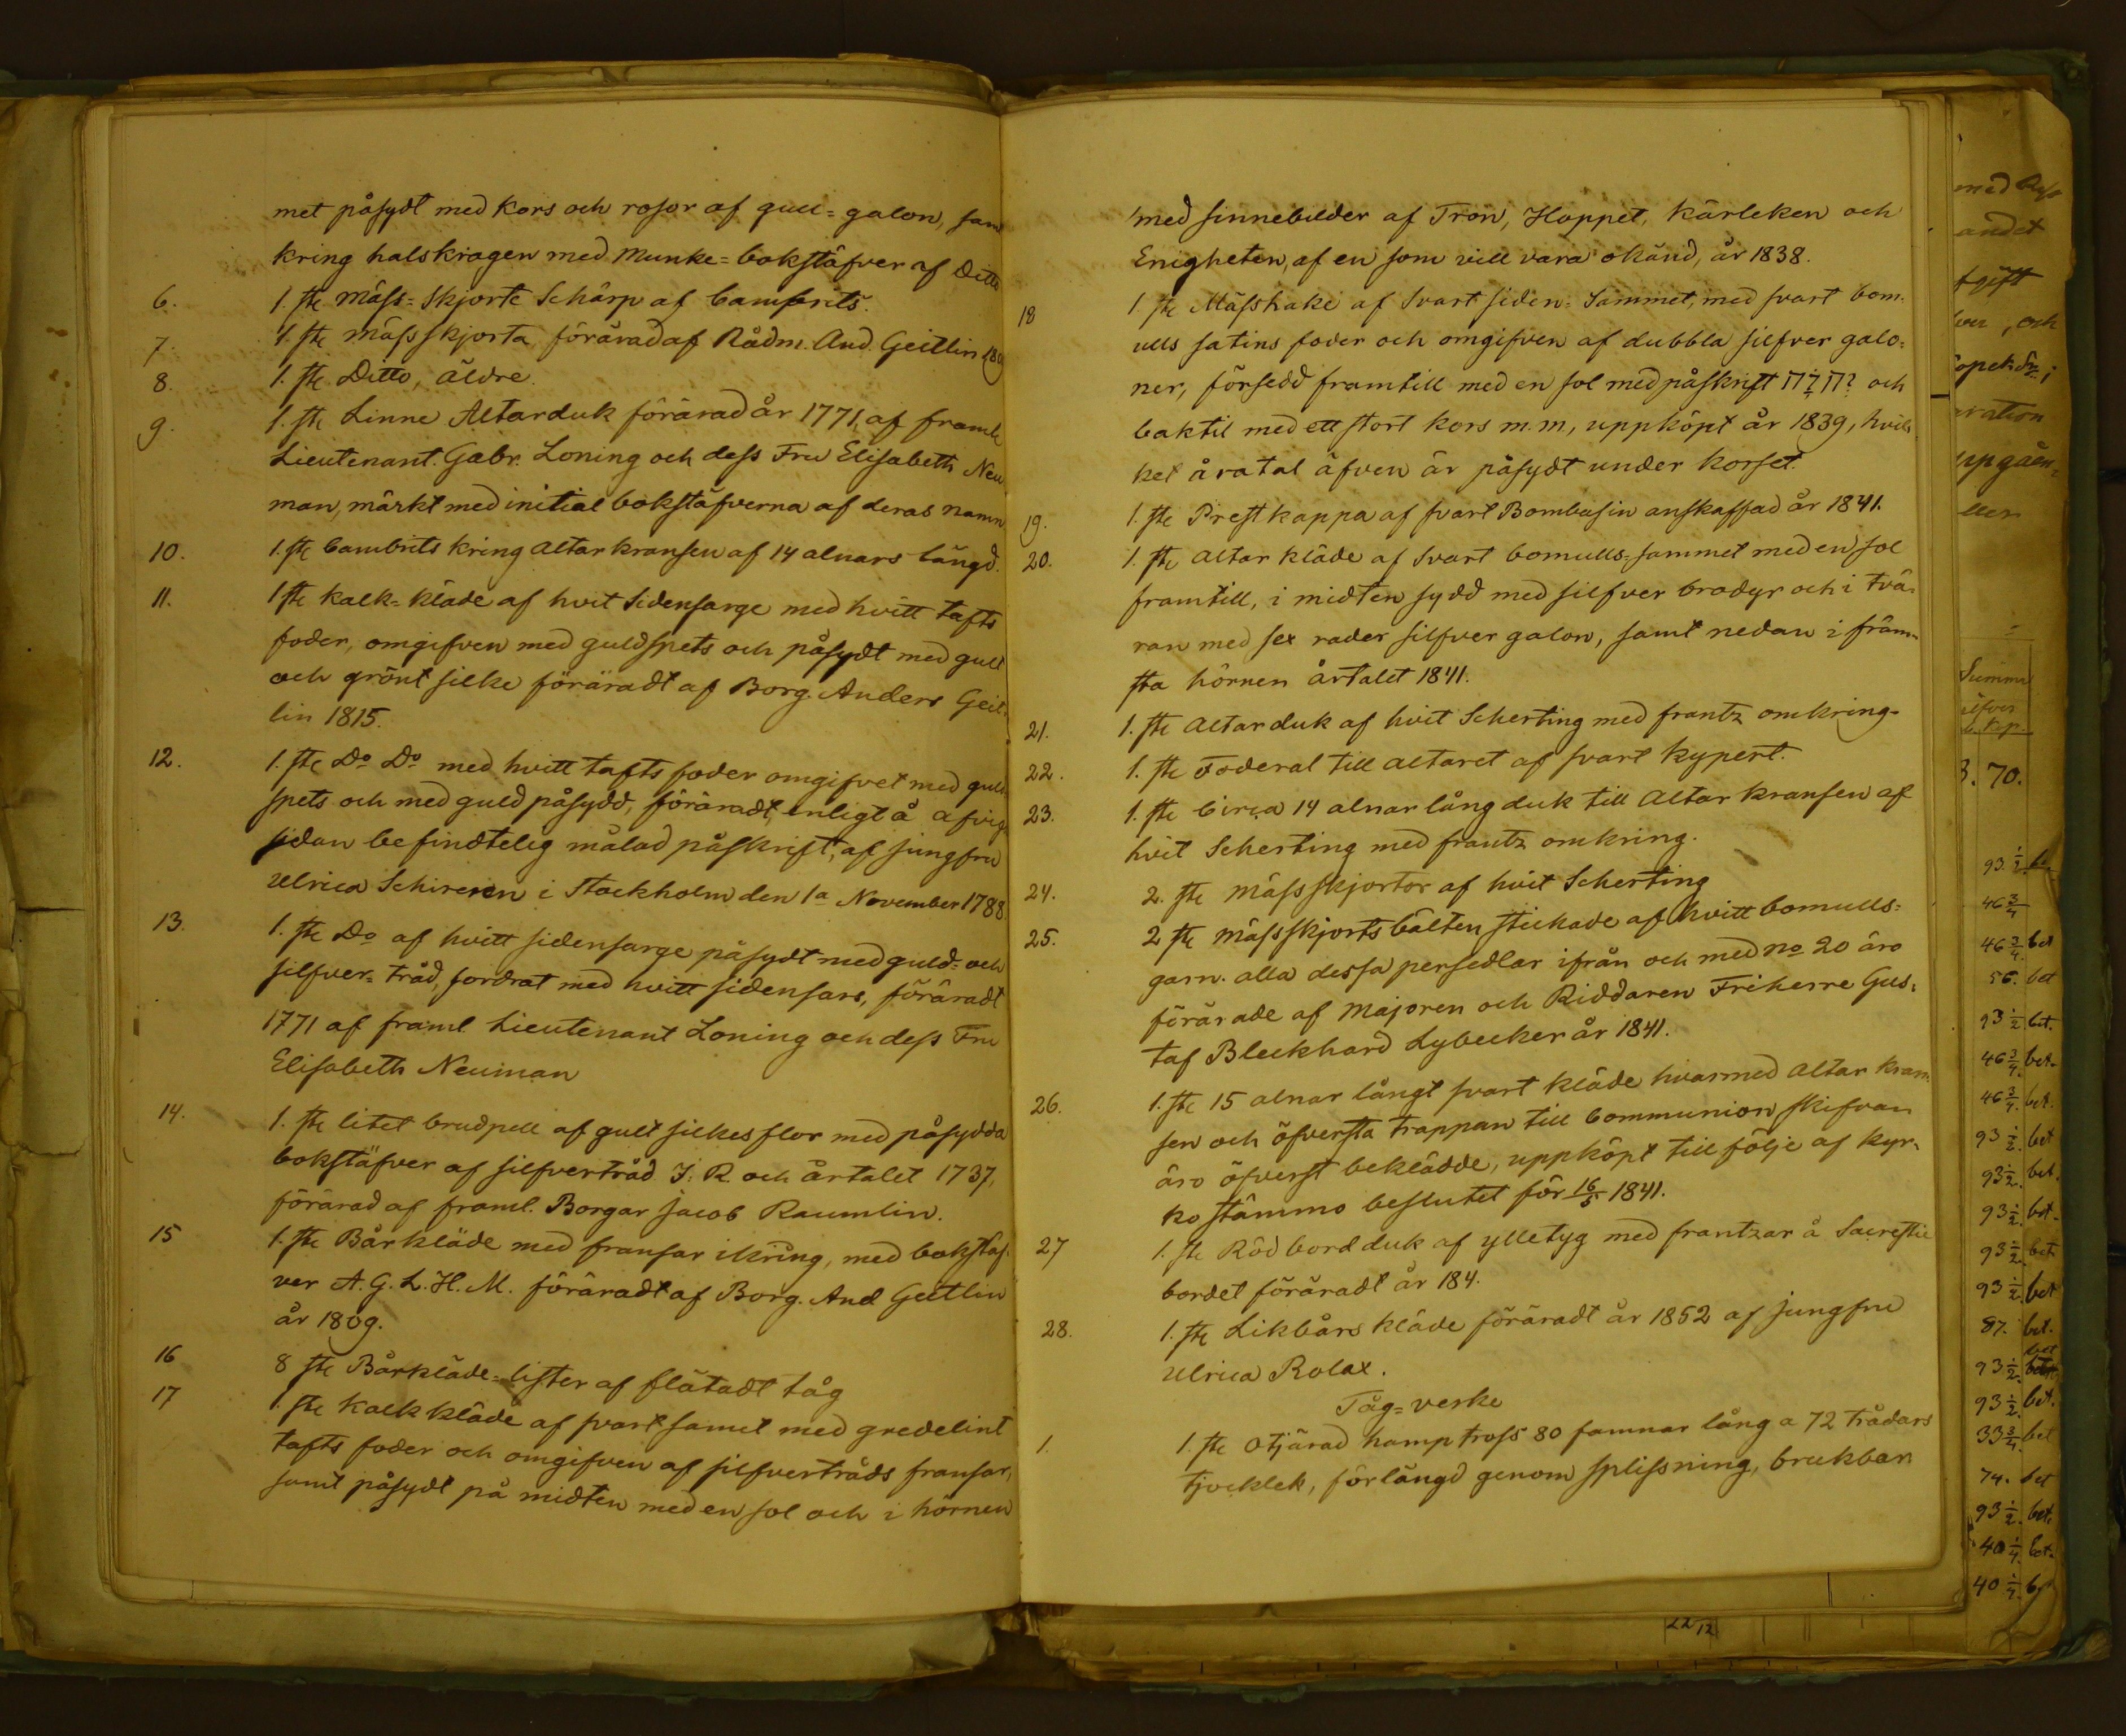 met påsydt med Kors och rosor af gull=galon, sam
kring halskragen med Munke=bokstäfver af Ditto
6. 1. st. Mäss=Skjorte Schärp af Cambrits.
7. 1. st. Mässskjorta förärad af Rådm. And. Geitlin
8. 1. st. Ditto, äldre.
9. 1. st. Linne Altarduk förärad år 1771, af framl.
Lieutenant. Gabr. Loning och dess Fru Elisabeth Neu
man, märkt med initial bokstäfverna af deras namn
10. 1. st. Cambrits kring Altar kransen af 14 alnars längd.
11. 1 st. Kalk=kläde af hvit Sidensarge med hvitt tafts
foder, omgifven med guldspets och påsydt med gull
och grönt silke förärädt af Borg. Anders Geit=
lin 1815.
12. 1. st. Do Do med hvitt tafts foder omgifvet med guld
spets och med guld påsydd, förärädt, enligt å afvig
sidan befindtelig målad påskrift, af jungfru
Ulrica Schireen i Stockholm den 1a November 1788
13. 1. st. Do af hvitt sidensarge påsydt med guld= och
silfver=tråd, fordrat med hvitt sidensars, förärädt
1771 af framl Lieutenant Loning och dess Fru
Elisabeth Neuman
14. 1. st. litet brudpell af gult silkesflor med påsydda
bokstäfver af silfvertråd J: R. och årtalet 1737,
förärad af framl. Borgar Jacob Raumlin.
15 1. st. Bårkläde med fransar ikring, med bokstäf=
ver A. G. L. H. M. förärädt af Borg. And Geitlin
år 1809.
16 8 st. Bårkläde=lister af flätadt tåg
17 1. st. Kalk kläde af svart samet med gredelint
tafts foder och omgifven af silfvertråds fransar,
samt påsydt på midten med en sol och i hörnen
med sinnebilder af Tron, Hoppet, Kärleken och
Enigheten, af en som vill vara okänd, år 1838.
18 1. st. Mässhake af Svart siden=Sammet, med svart bom=
ulls satins foder och omgifven af dubbla silfver galo=
ner, försedd framtill med en sol med påskrift יהוה och
baktil med ett stort kors m. m, uppköpt år 1839, hvil=
ket åratal äfven är påsydt under korset.
19. 1. st. Prestkappa af svart Bombasin anskaffad år 1841.
20. 1. st. Altar kläde af Svart bomulls=sammet med en sol
framtill, i midten sydd med silfver brodyr och i två=
ran med sex rader silfver galon, samt nedan i främ=
sta hörnen årtalet 1841.
21. 1. st. Altarduk af hvit Scherting med frantz omkring.
22. 1. st. Foderal till altaret af svart Kypert.
23. 1. st. Circa 14 alnar lång duk till Altar kransen af
hvit Scherting med frantz omkring.
24. 2. st. Mässskjortor af hvit Scherting
25. 2 st. Mässskjorts bälten stickade af hvitt bomulls=
garn. alla dessa persedlar ifrån och med No 20 äro
förärade af Majoren och Riddaren Friherre Gus=
taf Bleckhard Lybecker år 1841.
26. 1. st. 15 alnar långt svart kläde hvarmed Altar kran=
sen och öfversta trappan till Communion skifvan
äro öfverst beklädde, uppköpt till följe af Kyr=
ko stämmo beslutet för 16/5 1841.
27 1. st. Röd bord duk af ylletyg med frantzar å Sacrestie
bordet förärädt år 184.
28. 1. st. Likbårs kläde förärädt år 1852 af jungfru
Ulrica Rolax.
Tåg=verke
1. 1. st. Otjärad hamp tross 80 famnar lång a 72 trådars
tjocklek, förlängd genom splissning, brukbar
med
andet
och
ration
uppgåen=
Summa
kop.
3. 70.
93 1/2.
46 3/4
46 3/4. bet
56. bet
93 1/2. bet.
46 3/4. bet.
46 3/4. bet.
93 1/2. bet
93 1/2. bet.
93 1/2. bet.
93 1/2. bet
93 1/2. bet
87. bet.
bet
93 1/2.
93 1/2. bet.
33 3/4. bet
74. bet
93 1/2. bet.
40 1/4. bet.
40 1/4.
22 12